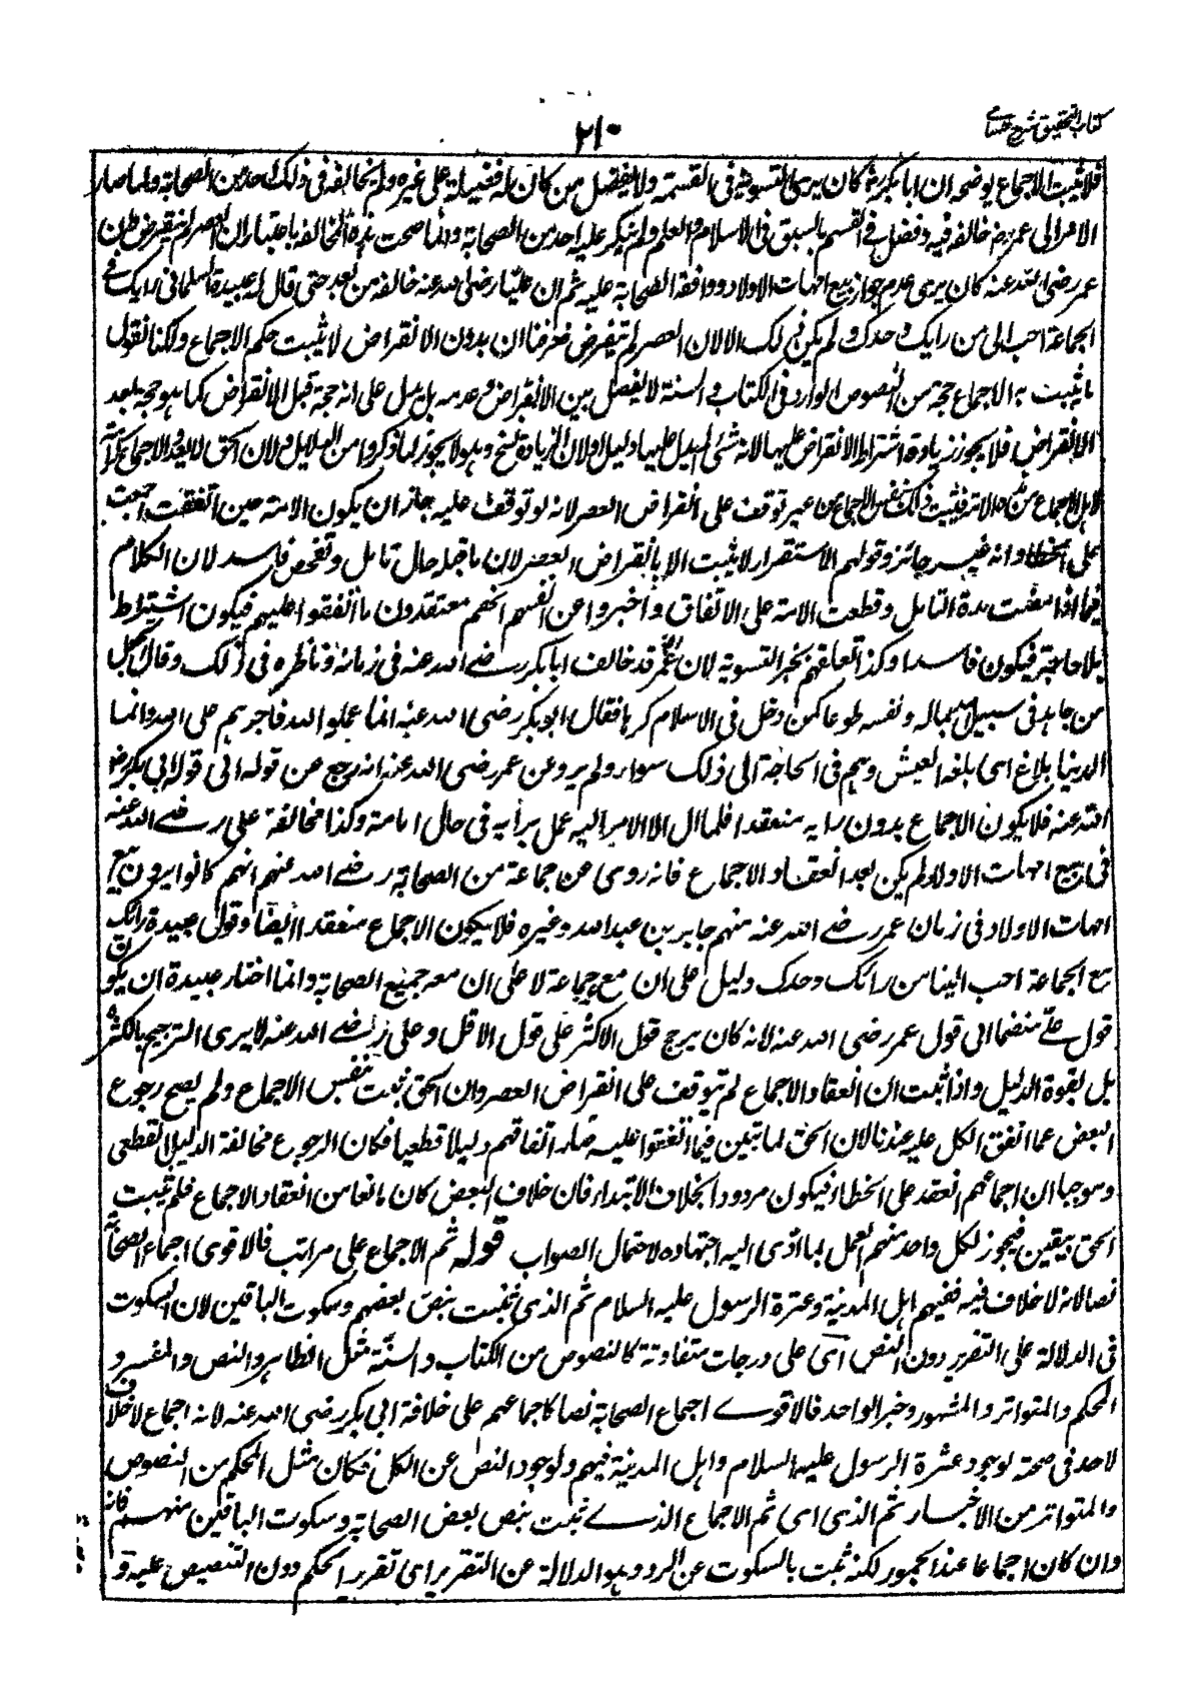 كتاب التحقيق شرح حسامي
٢١٠
فلا يثبت الاجماع يوضحه ان ابا بكر رض كان يرى التسوية في القسمة ولا يفضل من كان له فضيلة على غيره ولم يخالفه في ذلك احد من الصحابة ولما صار
الامر الى عمر رض خالفه فيه وفضل في القسم بالسبق في الاسلام والعلم ولم ينكر عليه احد من الصحابة وانما صحت هذه المخالفة باعتبار ان العصر لم ينقرض وان
عمر رضى الله عنه كان يرى عدم جواز بيع امهات الاولاد ووافقه الصحابة عليه ثم ان عليا رضى الله عنه خالفه من بعد حتى قال له عبيدة السلمانى رايك في
الجماعة احب الى من رايك وحدك ولم يكن ذلك الا لان العصر لم ينقرض فعرفنا ان بدون الانقراض لا يثبت حكم الاجماع ولكنا نقول
ما يثبت به الاجماع حجة من النصوص الواردة في الكتاب والسنة لا يفصل بين الانقراض وعدمه بل يدل على انه حجة قبل الانقراض كما هو حجة بعد
الانقراض فلا يجوز زيادة اشتراط الانقراض عليها لانه شئ لم يدل عليها دليل ولان الزيادة نسخ وهو لا يجوز لما ذكروا من الدلايل ولان الحق لا يعدو الاجماع كرامة
لاهل الاجماع من هذه الامة فيثبت ذلك بنفس الاجماع من غير توقف على انقراض العصر لانه لو توقف عليه جاز ان يكون الامة حين اتفقت اجمعت
على الخطاء وانه غير جائز وقولهم الاستقرار لا يثبت الا بانقراض العصر لان ما قبله حال تامل وتفحص فاسد لان الكلام
فيما اذا مضت مدة التامل وقطعت الامة على الاتفاق واخبروا عن انفسهم انهم معتقدون ما اتفقوا عليه فيكون اشتراط
بلا حاجة فيكون فاسدا وكذا تعلقهم بخبر التسوية لان عمر رض قد خالف ابا بكر رضے الله عنه في زمانه وناظره في ذلك وقال اتجعل
من جاهد في سبيل الله بماله ونفسه طوعا كمن دخل في الاسلام كرها فقال ابو بكر رضى الله عنه انما عملوا لله فاجرهم على الله وانما
الدنيا بلاغ اى بلغة العيش وهم في الحاجة الى ذلك سواء ولم يرو عن عمر رضى الله عنه انه رجع عن قوله الى قول ابى بكر رضى
الله عنه فلا يكون الاجماع بدون رايه منعقدا فلما آل الامر اليه عمل برايه في حال امامته وكذا مخالفة على رضے الله عنه
في بيع امهات الاولاد لم يكن بعد انعقاد الاجماع فانه روى عن جماعة من الصحابة رضے الله عنهم انهم كانوا يرون بيع
امهات الاولاد في زمان عمر رضے الله عنه منهم جابر بن عبد الله وغيره فلا يكون الاجماع منعقدا ايضا وقول عبيدة رائك
مع الجماعة احب الينا من رائك وحدك دليل على ان مع جماعة لا على ان معه جميع الصحابة وانما اختار عبيدة ان يكون
قول على منضما الى قول عمر رضى الله عنه لانه كان يرجح قول الاكثر على قول الاقل وعلى رضے الله عنه لا يرى الترجيح بالكثرة
بل بقوة الدليل واذا ثبت ان انعقاد الاجماع لم يتوقف على انقراض العصر وان الحق ثبت بنفس الاجماع ولم يصح رجوع
البعض عما اتفق الكل عليه عندنا لان الحق لما تبين فيما اتفقوا عليه صار اتفاقهم دليلا قطعيا فكان الرجوع مخالفة الدليل القطعى
وموجبا ان اجماعهم انعقد على الخطاء فيكون مردودا بخلاف الابتداء فان خلاف البعض كان مانعا من انعقاد الاجماع فلم يثبت
الحق بيقين فيجوز لكل واحد منهم العمل بما ادى اليه اجتهاده لاحتمال الصواب قوله ثم الاجماع على مراتب فالاقوى اجماع الصحابة
نصا لانه لا خلاف فيه ففيهم اهل المدينة وعترة الرسول عليه السلام ثم الذى ثبت بنص بعضهم وسكوت الباقين لان السكوت
في الدلالة على التقرير دون النص اى على درجات متفاوتة كالنصوص من الكتاب والسنة مثل الظاهر والنص والمفسر و
المحكم والمتواتر والمشهور وخبر الواحد فالاقوے اجماع الصحابة نصا كاجماعهم على خلافة ابى بكر رضى الله عنه لانه اجماع لا خلاف
لاحد في صحته لوجود عترة الرسول عليه السلام واهل المدينة فيهم ولوجود النص عن الكل فكان مثل المحكم من النصوص
والمتواتر من الاخبار ثم الذى اى ثم الاجماع الذے ثبت بنص بعض الصحابة وسكوت الباقين منهم فانه
وان كان اجماعا عند الجمهور لكنه ثبت بالسكوت عن الرد وهو الدلالة عن التقرير اى تقرير الحكم دون التنصيص عليه و